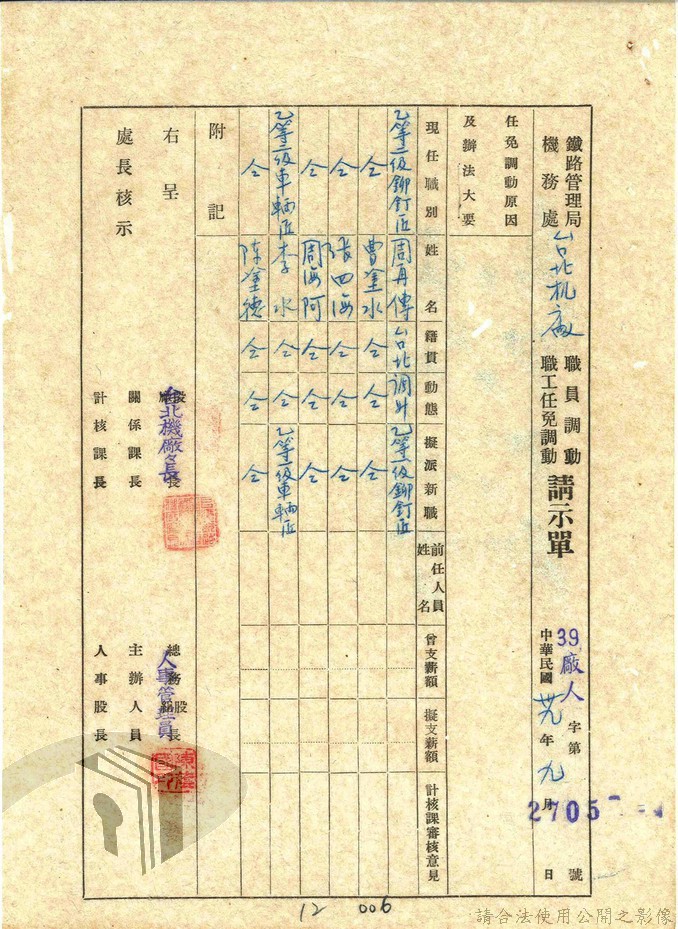 鐵路管理局
機務處
台北机廠
職員調動
職工任免調動
請示單
39廠人字第2705號
中華民國卅九年九月 日
任免調動原因
及辦法大要
現任職別 姓名 籍貫 動態 擬派新職 前任人員姓名 曾支薪額 擬支薪額 計核課審核意見
乙等二級鉚釘匠 周再傳 台北 調升 乙等一級鉚釘匠
仝 曹塗水 仝 仝 仝
仝 張四海 仝 仝 仝
仝 周海阿 仝 仝 仝
乙等二級車輛匠 李水 仝 仝 乙等一級車輛匠
仝 陈塗德 仝 仝 仝
附記
右呈
處長核示
台北機廠廠長
關係課長
計核課長
總務股長
人事管理員
主辦人員
人事股長
12 006
請合法使用公開之影像